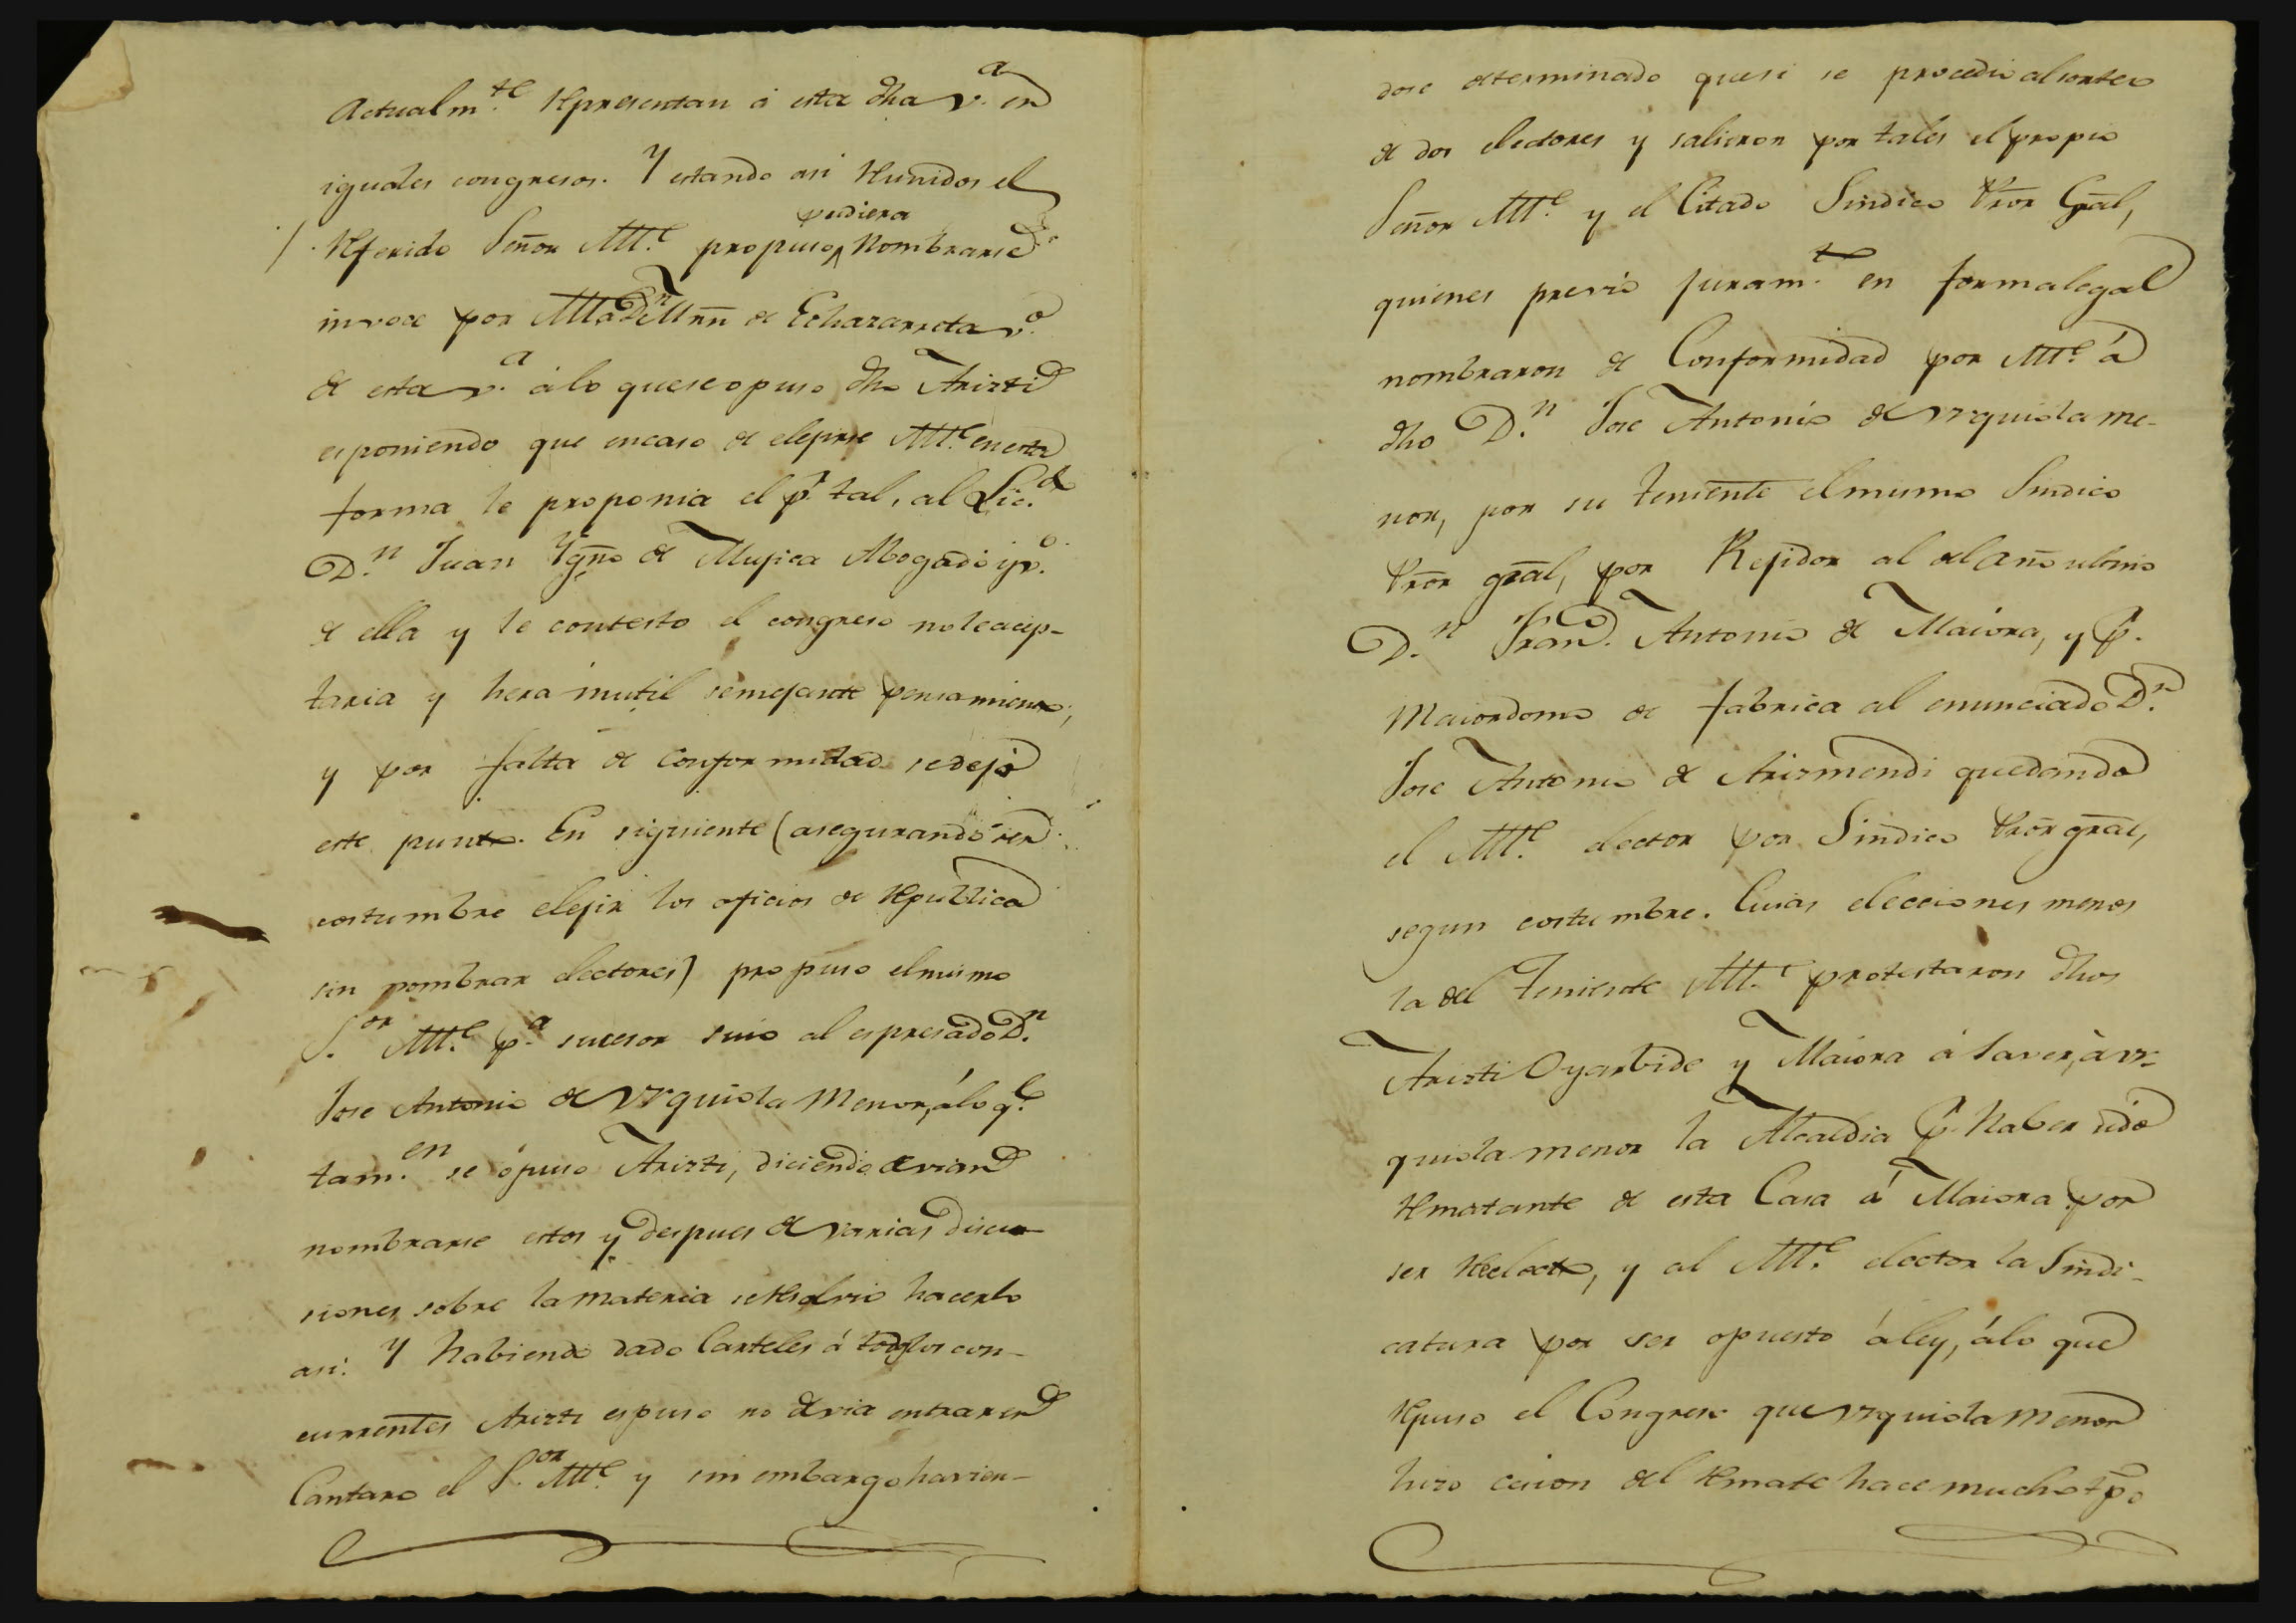 Actualm.te representan á esta dha v.a en
iguales congresos. Y estando asi reunidos el
referido Señor Alle. propuso pudiera nombrarse
in voce por Alle. a D.n Mrñ de Echazarreta v.o
de esta v.a á lo que se opuso dho Arizti
esponiendo que en caso de elejirse Alle. en esta
forma le proponia el p.r tal, al Lic.do
D.n Juan Ygño de Mujica Abogado y v.o
de ella y le contesto el congreso no le acep-
taria y hera inutil semejante pensamiento,
y por falta de conformidad se dejó
este punto. En siguiente (asegurando ser
costumbre elejir los oficios de republica
sin nombrar electores) propuso el mismo
S.or Alle. p.a sucesor suio al espresado D.n
Jose Antonio de Vrquiola menor, á lo q.e
tam.en se opuso Arizti, diciendo devian
nombrarse estos y despues de varias discu-
siones sobre la materia se resolvio hacerlo
asi. Y habiendo dado Carteles á todos los con-
currentes Arizti espuso no devia entrar en
Cantaro el S.or Alle. y sin embargo havien-
dose determinado que si se procedio al sorteo
de dos electores y salieron por tales el propio
Señor Alle. y el Citado Sindico Pror Gral,
quienes previo juram.to en forma legal
nombraron de Conformidad por Alle. á
dho D.n Jose Antonio de Vrquiola me-
nor, por su teniente el mismo Sindico
Pror gral, por Rejidor al del año ultimo
D.n Fran.co Antonio de Maiora, y p.r
Maiordomo de fabrica al enunciado D.n
Jose Antonio de Arizmendi quedando
el Alle. elector por Sindico Pror gral,
segun costumbre. Cuias elecciones menos
la del Teniente Alle. protestaron dhos
Arizti Oyarbide y Maiora á saver, á Vr-
quiola menor la Alcaldia p.r haber sido
rematante de esta Casa á Maiora por
ser reelecto, y al Alle. elector la Sindi-
catura por ser opuesto á ley, á lo que
repuso el Congreso que Vrquiola menor
hizo cesion del remate hace mucho tpo